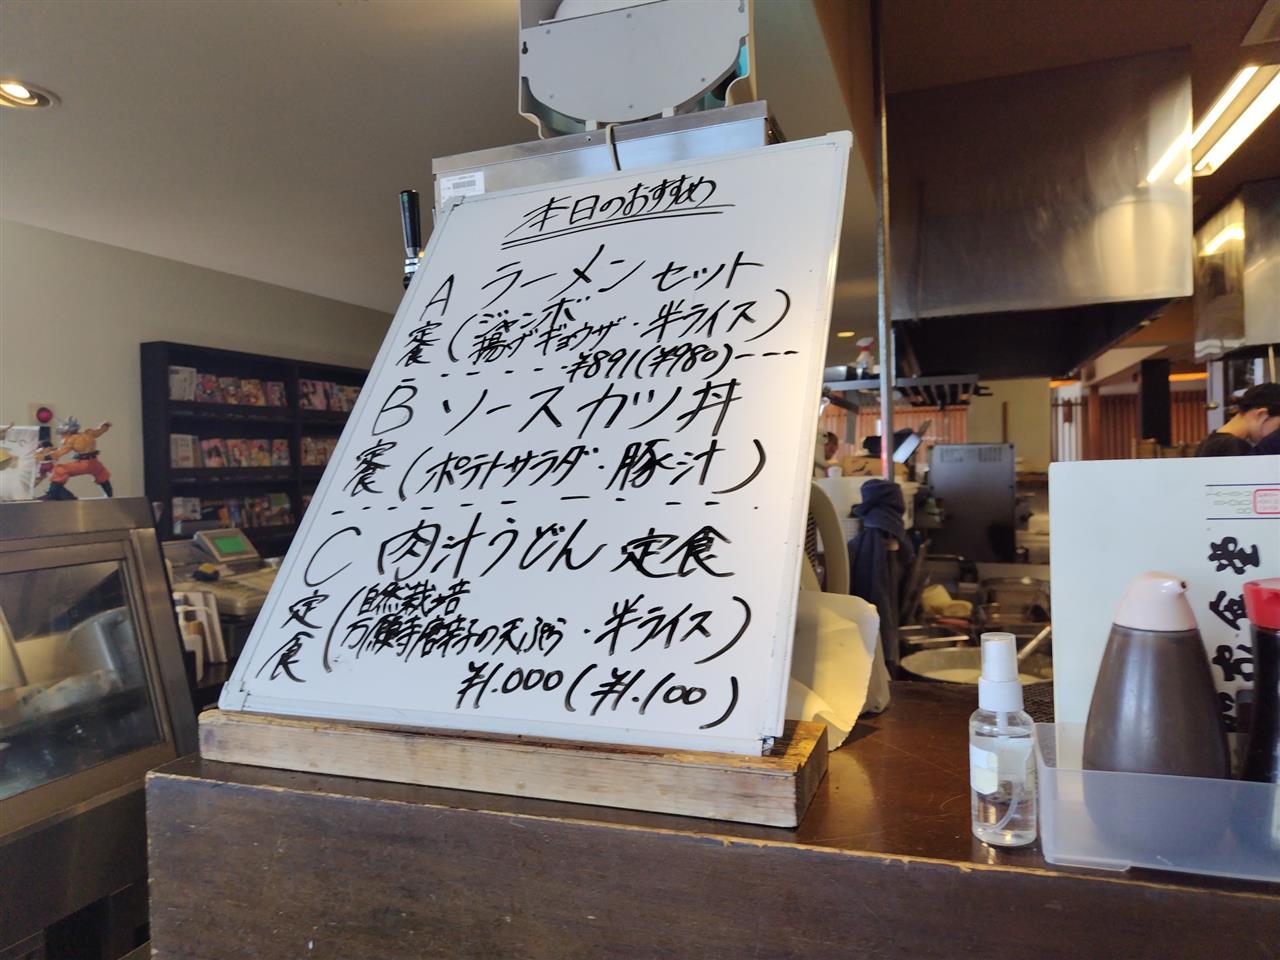 本日のおすすめ
A定食 ラーメンセット
(ジャンボ揚げギョウザ・半ライス)
¥891(¥980)
B定食 ソースカツ丼
(ポテトサラダ・豚汁)
C定食 肉汁うどん定食
(自然栽培
万願寺唐辛子の天ぷら・半ライス)
¥1.000(¥1.100)